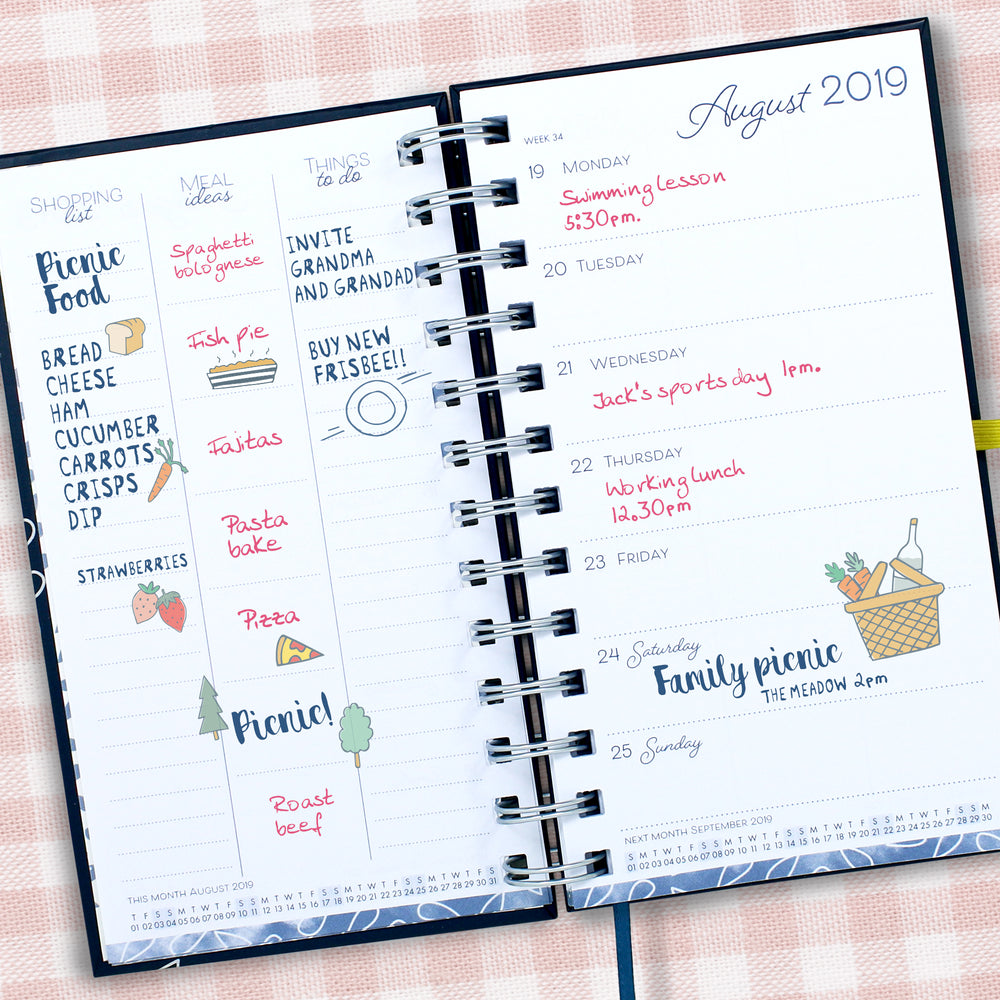 SHOPPING
list
Picnic
Food
BREAD
CHEESE
HAM
CUCUMBER
CARROTS
CRISPS
DIP
STRAWBERRIES
MEAL
ideas
Spaghetti
bolognese
Fish pie
Fajitas
Pasta
bake
Pizza
Picnic!
Roast
beef
THINGS
to do
INVITE
GRANDMA
AND GRANDAD
BUY NEW
FRISBEE!!
THIS MONTH AUGUST 2019
T F S S M T W T F S S M T W T F S S M T W T F S S M T W T F S
01 02 03 04 05 06 07 08 09 10 11 12 13 14 15 16 17 18 19 20 21 22 23 24 25 26 27 28 29 30 31
August 2019
WEEK 34
19 MONDAY
Swimming lesson
5:30pm.
20 TUESDAY
21 WEDNESDAY
Jack's sports day 1pm.
22 THURSDAY
Working lunch
12.30pm
23 FRIDAY
24 Saturday
Family picnic
THE MEADOW 2pm
25 Sunday
NEXT MONTH SEPTEMBER 2019
S M T W T F S S M T W T F S S M T W T F S S M T W T F S S M
01 02 03 04 05 06 07 08 09 10 11 12 13 14 15 16 17 18 19 20 21 22 23 24 25 26 27 28 29 30